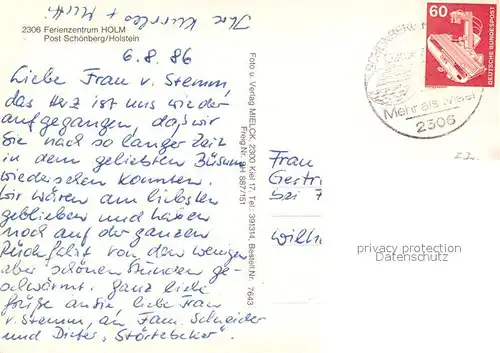 Ihre Kurt + Mutti
2306 Ferienzentrum HOLM
Post Schönberg/Holstein
6.8.86
Liebe Frau v. Stemm,
das Herz ist uns wieder
aufgegangen, daß wir
Sie nach so langer Zeit
in dem geliebten Büsum
wiedersehen konnten.
Wir wären am liebsten
geblieben und haben
noch auf der ganzen
Rückfahrt von den wenigen
aber schönen Stunden ge-
schwärmt. Ganz liebe
Grüße an Sie, liebe Frau
v. Stemm, an Fam. Schneider
und Dieter "Störtebeker".
Foto u. Verlag MELCK, 2300 Kiel 17, Tel.: 391314, Bestell Nr. 7643
Freig Nr. SH 887/151
60
DEUTSCHE BUNDESPOST
Mehr als Meer
2306
Frau
Gertr
bei
Wilh
privacy protection
Datenschutz